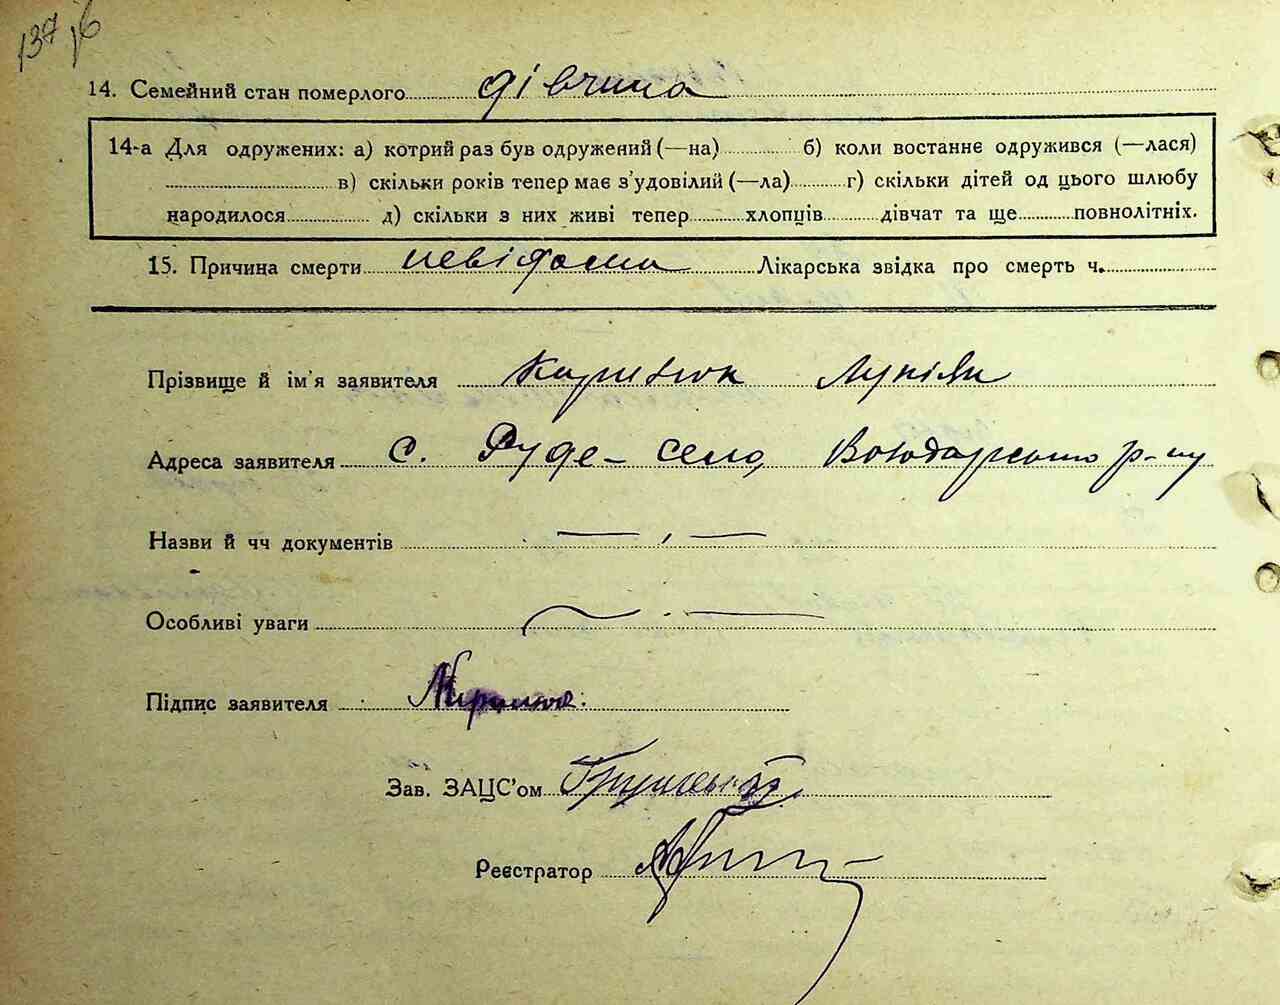 137 зв
14. Семейний стан померлого дівчина
14-а Для одружених: а) котрий раз був одружений (—на) б) коли востаннє одружився (—лася)
в) скільки років тепер має з'удовілий (—ла) г) скільки дітей од цього шлюбу
народилося д) скільки з них живі тепер хлопців дівчат та ще повнолітніх.
15. Причина смерти невідома Лікарська звідка про смерть ч.
Прізвище й ім'я заявителя Лукіян
Адреса заявителя с. Руде-село, Володарського р-ну
Назви й чч документів — „ —
Особливі уваги
Підпис заявителя
Зав. ЗАЦС'ом
Реєстратор